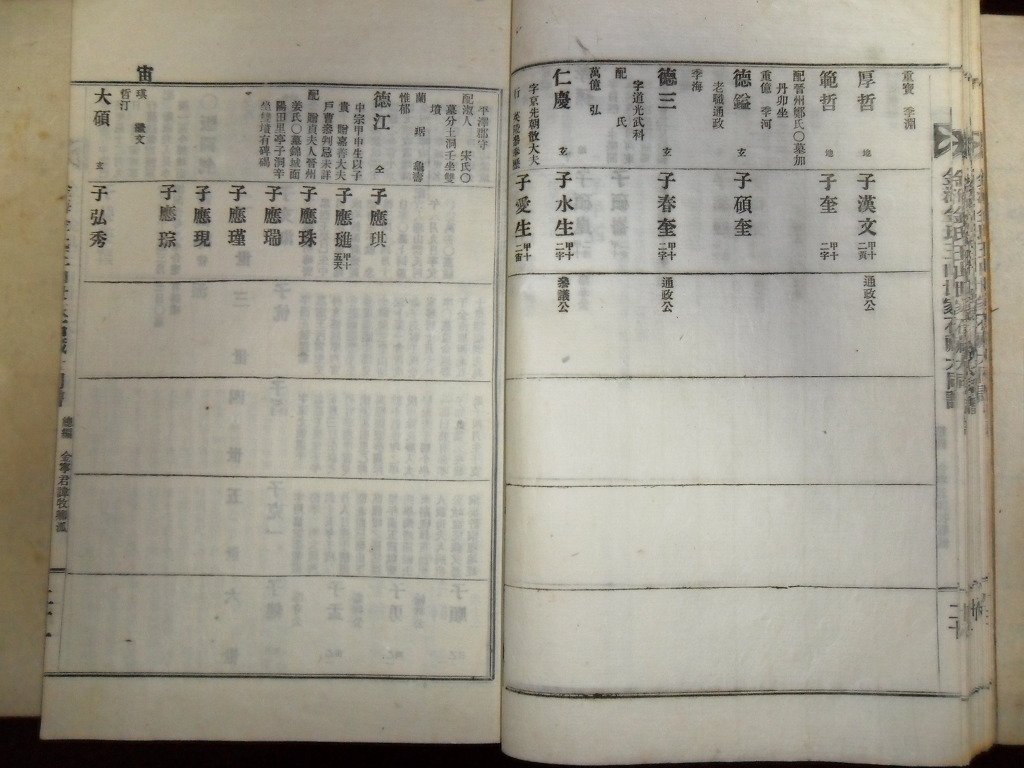 重寶 季淵
厚哲 地
子漢文 甲十二頁
通政公
範哲 地
子奎 甲十二字
配晉州鄭氏〇墓加
丹卯坐
重億 季河
德鎰 玄
子碩奎
老職通政
季海
德三 玄
子春奎 甲十二字
通政公
字道光武科
配 氏
萬億 弘
仁慶 玄
子水生 甲十二字
參議公
字京先朝散大夫
子愛生 甲十二宙
平澤郡守
配淑人 宋氏〇
墓分土洞壬坐雙
墳
蘭 琚
惟郁
德江 仝
子應珙
中宗甲申生以子
貴 贈嘉善大夫
戶曹參判忌未詳
配 贈貞夫人晉州
姜氏〇墓錦城面
陽田里亭子洞辛
坐雙墳有碑碣
子應璡 甲十五天
子應珠
子應瑞
子應瑾
子應現
子應琮
宙
琪 文
哲汀
大碩 玄
子弘秀
總編 金寧君諱牧卿派